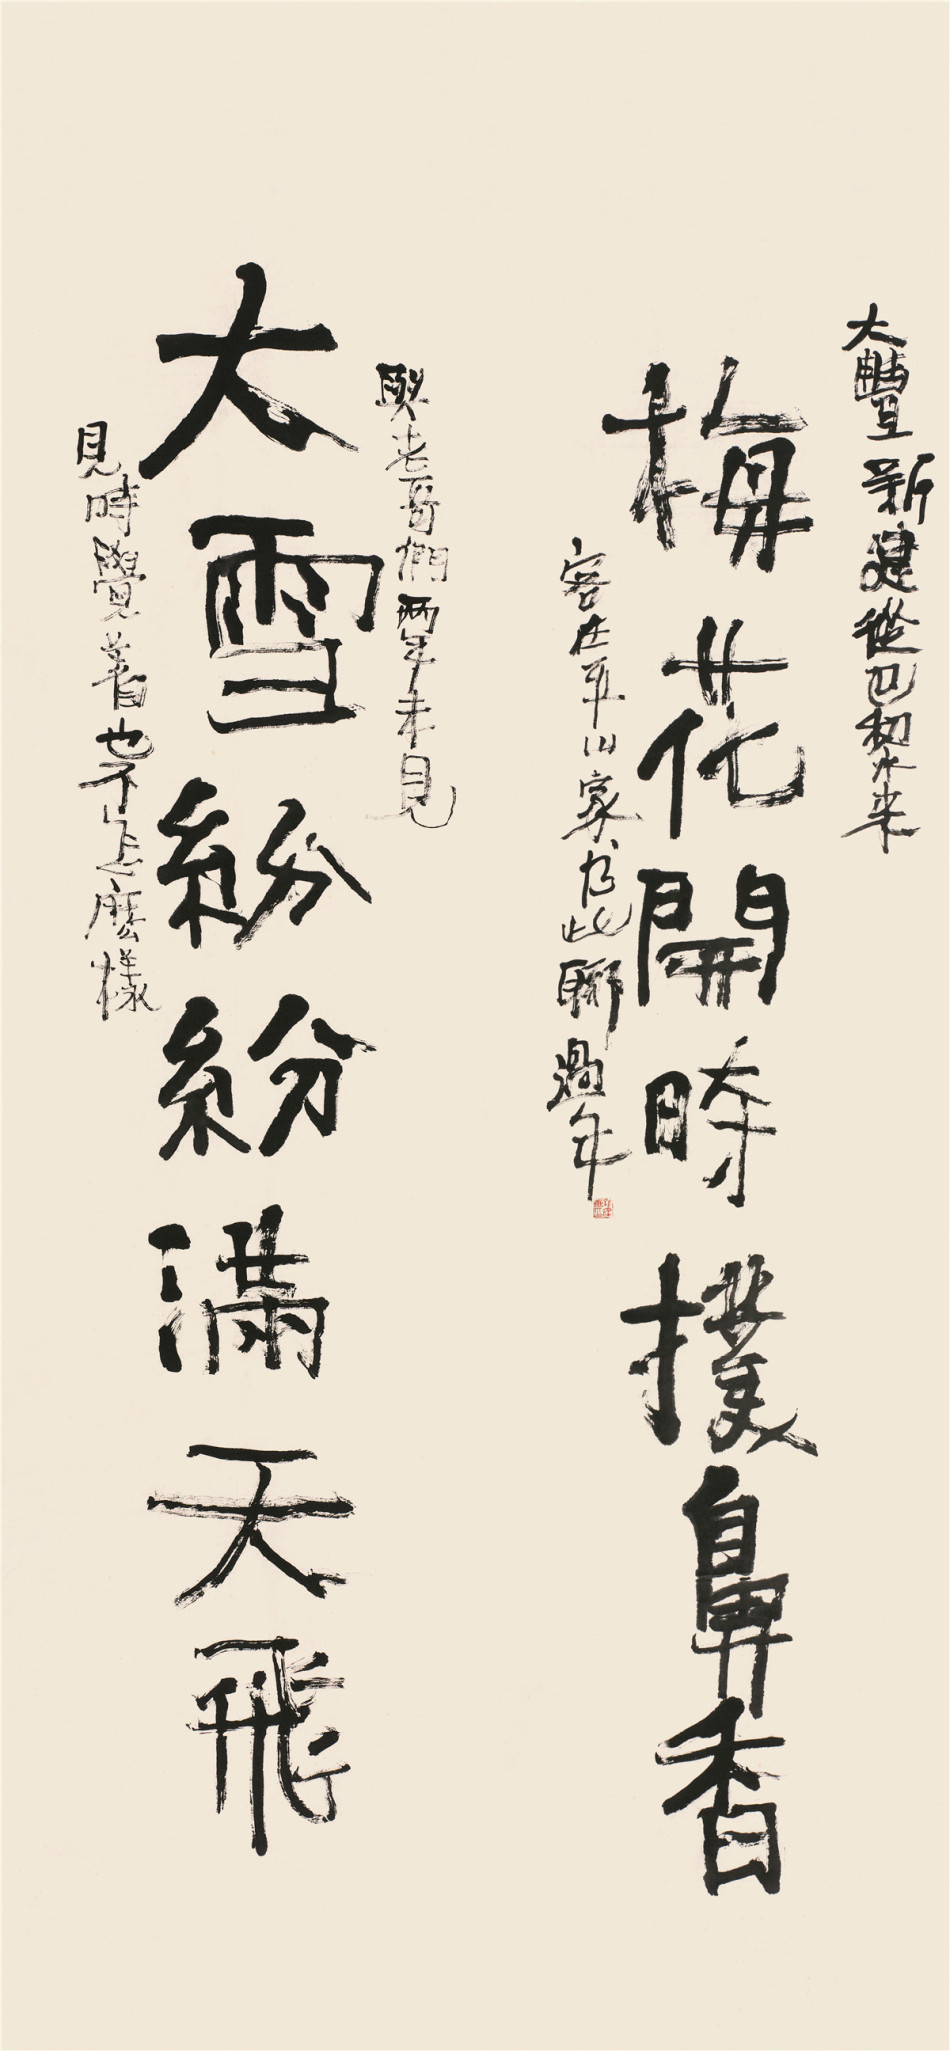 大豐新建從巴黎来
梅花開時撲鼻香
客在平山家此聊過年
老哥們兩年未見
大雪紛紛滿天飛
見時覺著也不怎麼樣